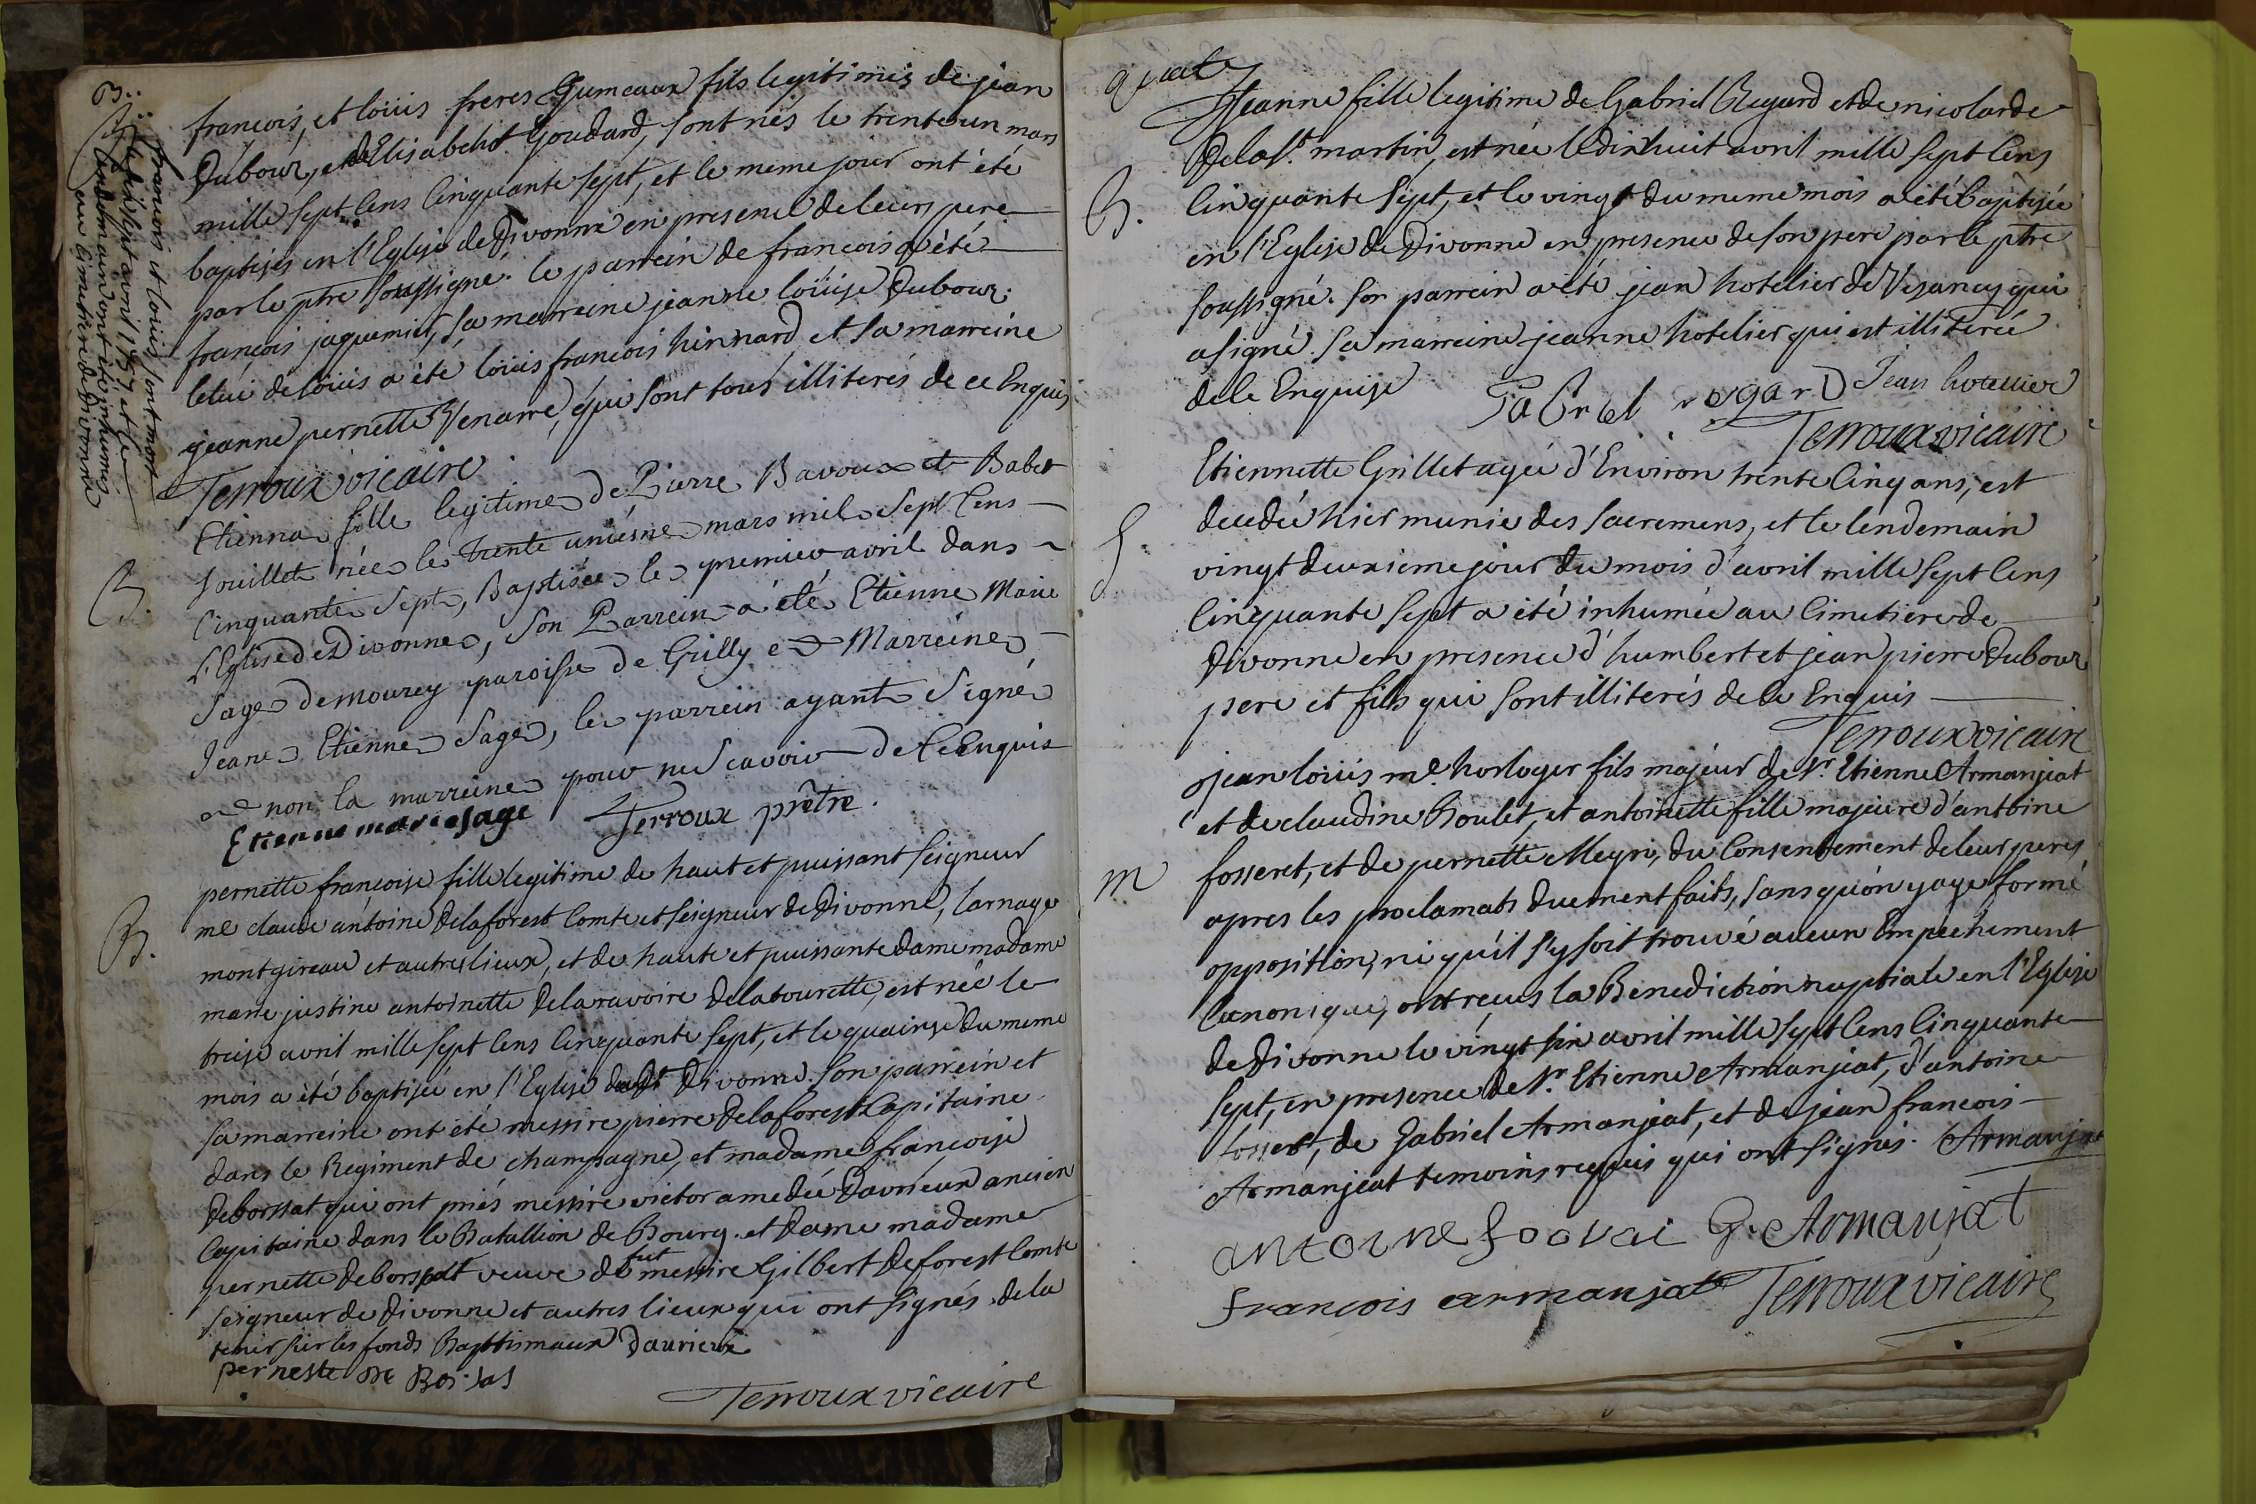 B.
françois, et loüis freres Gumeaux fils legitimes de jean
Dubour, et de Elisabeht Goudard, sont nés le trente un mars
mille sept cens cinquante sept, et le meme jour ont été
baptisés en l'Eglise de Divonne en presence de leurs pere
par le ptre soussigné. le parrein de francois a été
françois jaquemier, sa marreine jeanne loüise Dubour.
celui de loüis a été loüis françois hinnard et sa marreine
jeanne pernette Venarre, qui sont tous illiterés de ce Enquis
Terroux vicaire
francois et loüis sont mort
le dix sept avril 1757 et le
lendemain ont été inhumés
au cimetiere de Divonne
B.
Etienna fille legitime de Pierre Bavoux et Babet
Jouillet née le trente unieme mars mil sept cens
cinquante sept, Baptisée le premier avril dans
l'Eglise de Divonne, son Parrein a été Etienne Marie
Sage de mourey paroisse de Grilly et Marreine
Jeane Etienne Sage, le parrein ayant signé
et non la marreine pour ne scavoir de ce Enquis
Etienne marie sage Terroux prêtre.
B.
pernette françoise fille legitime de haut et puissant seigneur
me claude antoine delaforest comte et seigneur de Divonne, larnage
montgireau et autres lieux, et de haute et puissante dame madame
marie justine antoinette delaravoire delatourette, est née le
treise avril mille sept cens cinquante sept, et le quainse du meme
mois a été baptisée en l'Eglise dudt Divonne. son parrein et
sa marreine ont été messire pierre delaforest capitaine
dans le Regiment de champagne, et madame françoise
deborssat qui ont priés messire victor amedée Davrieux ancien
capitaine dans le Batallion de Bourg. et dame madame
pernette deborssat veuve de fut messire Gilbert deforest comte
seigneur de Divonne et autres lieux qui ont signés de la
tenir sur les fonds Baptismaux Daurieux
pernette De Borsat
Terroux vicaire
Jeanne fille legitime de Gabriel Regard et de nicolarde
Dela st. martin, est née le dixhuit avril mille sept cens
B.
cinquante sept, et le vingt du meme mois a été baptisée
en l'Eglise de Divonne en presence de son pere par le ptre
soussigné. son parrein a été jean hotelier de Vesancy qui
a signé. sa marreine jeanne hotelier qui est illiterée
de ce Enquise Gabriel regard Jean hotellier
Terroux vicaire
S.
Etiennette Grillet agée d'Environ trente cinq ans, est
decedée hier munie des sacremens, et le lendemain
vingt deuxieme jour du mois d'avril mille sept cens
cinquante sept a été inhumée au cimetiere de
Divonne en presence d'humbert et jean pierre Dubour
pere et fils qui sont illiterés de ce Enquis
Terroux vicaire
m
jean loüis me. horloger fils majeur de Sr. Etienne Armanjeat
et de claudine Roulet, et antoinette fille majeure d'antoine
fosseret, et de pernette Megro, du consentement de leurs peres
apres les proclamats duement faits, sans qu'on y aye formé
opposition, ni qu'il s'y soit trouvé aucun Empechement
canonique, ont reçus la Benediction nuptiale en l'Eglise
de Divonne le vingt six avril mille sept cens cinquante
sept, en presence de Sr. Etienne Armanjeat, d'antoine
fosseret, de Gabriel Armanjeat, et de jean francois
Armanjeat temoins requis qui ont signés. Armanjat
antoine G. Armanjat
francois armanjat Terroux vicaire